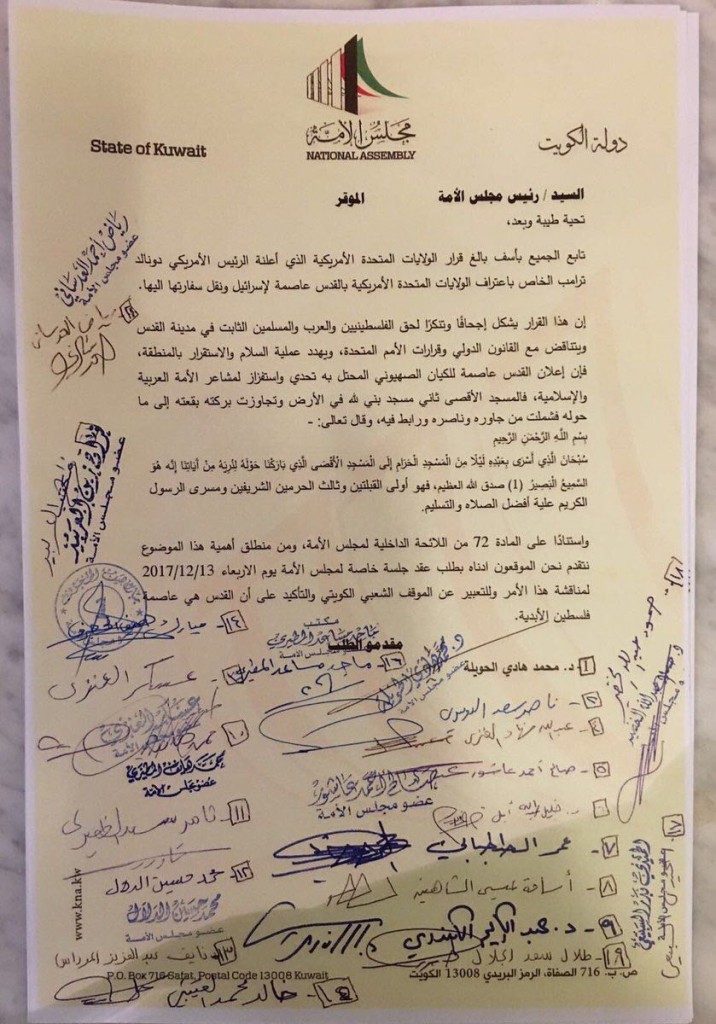 State of Kuwait
مجلس الأمة
NATIONAL ASSEMBLY
دولة الكويت
السيد / رئيس مجلس الأمة الموقر
تحية طيبة وبعد،
تابع الجميع بأسف بالغ قرار الولايات المتحدة الأمريكية الذي أعلنة الرئيس الأمريكي دونالد
ترامب الخاص باعتراف الولايات المتحدة الأمريكية بالقدس عاصمة لإسرائيل ونقل سفارتها اليها.
إن هذا القرار يشكل إجحافًا وتنكرًا لحق الفلسطينيين والعرب والمسلمين الثابت في مدينة القدس
ويتناقض مع القانون الدولي وقرارات الأمم المتحدة، ويهدد عملية السلام والاستقرار بالمنطقة،
فإن إعلان القدس عاصمة للكيان الصهيوني المحتل به تحدي واستفزاز لمشاعر الأمة العربية
والإسلامية، فالمسجد الأقصى ثاني مسجد بني لله في الأرض وتجاوزت بركته بقعته إلى ما
حوله فشملت من جاوره وناصره ورابط فيه، وقال تعالى: -
بِسْمِ اللَّهِ الرَّحْمَنِ الرَّحِيمِ
سُبْحَانَ الَّذِي أَسْرَى بِعَبْدِهِ لَيْلًا مِنَ الْمَسْجِدِ الْحَرَامِ إِلَى الْمَسْجِدِ الْأَقْصَى الَّذِي بَارَكْنَا حَوْلَهُ لِنُرِيَهُ مِنْ آيَاتِنَا إِنَّه هُوَ
السَّمِيعُ الْبَصِيرُ (1) صدق الله العظيم، فهو أولى القبلتين وثالث الحرمين الشريفين ومسرى الرسول
الكريم علية أفضل الصلاه والتسليم.
واستنادًا على المادة 72 من اللائحة الداخلية لمجلس الأمة، ومن منطلق أهمية هذا الموضوع
نتقدم نحن الموقعون ادناه بطلب عقد جلسة خاصة لمجلس الأمة يوم الاربعاء 2017/12/13
لمناقشة هذا الأمر وللتعبير عن الموقف الشعبي الكويتي والتأكيد على أن القدس هي عاصمة
فلسطين الأبدية.
مقدمو الطلب
رياض أحمد العدساني
عضو مجلس الأمة
عضو مجلس الأمة
مكتب
ماجد مساعد المطيري
١٤- مبارك
١- د. محمد هادي الحويلة
١٦- ماجد مساعد المطيري
عسكر العنزي
٥- صالح احمد عاشور
صالح أحمد عاشور
عضو مجلس الأمة
عضو مجلس الأمة
١١-
٧- عمر الطبطبائي
٨- أسامة عيسى الشاهين
١٢- محمد حسين الدلال
محمد حسين الدلال
عضو مجلس الأمة
٩- د. عبد الكريم الكندري
١٣- نايف عبد العزيز المرداس
١٩- طلال سعد الجلال
خالد محمد العتيبي
www.kna.kw
P.O. Box 716 Safat, Postal Code 13008 Kuwait
ص. ب. 716 الصفاة، الرمز البريدي 13008 الكويت